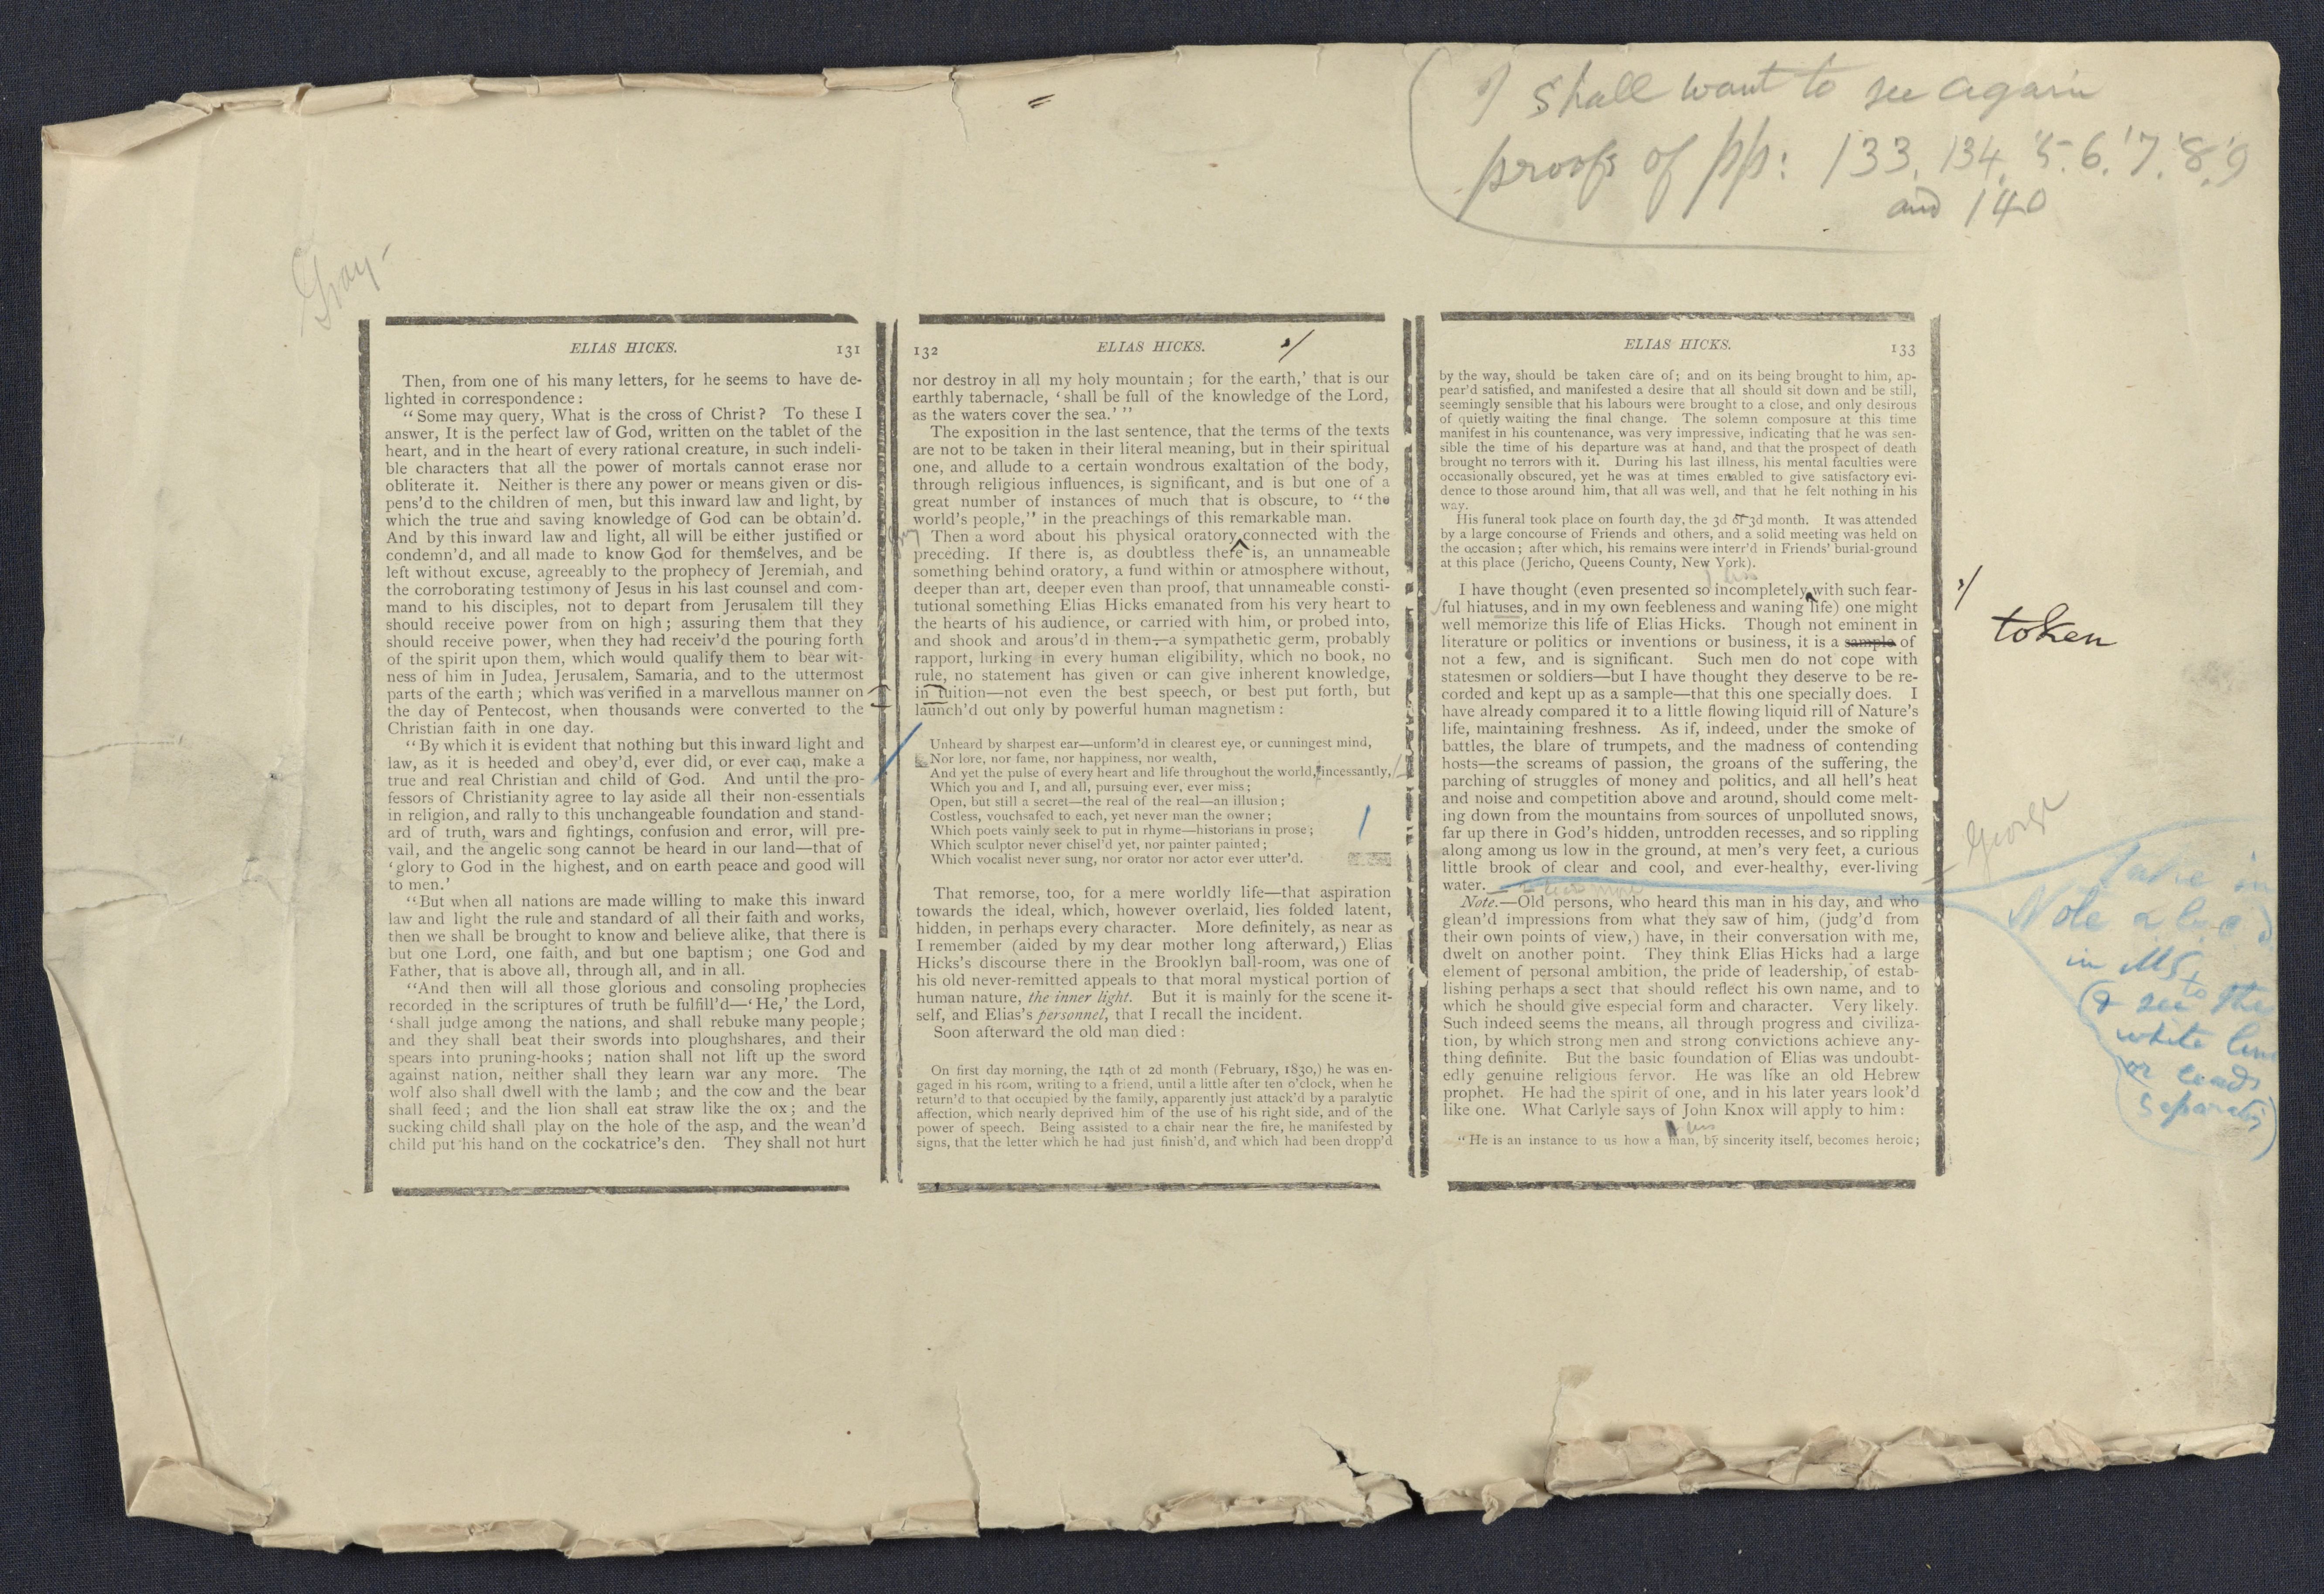 I shall want to see again
proofs of pp: 133, 134, '5. 6. '7. '8. '9
and 140
Gray
ELIAS HICKS. 131
Then, from one of his many letters, for he seems to have de-
lighted in correspondence :
“Some may query, What is the cross of Christ? To these I
answer, It is the perfect law of God, written on the tablet of the
heart, and in the heart of every rational creature, in such indeli-
ble characters that all the power of mortals cannot erase nor
obliterate it. Neither is there any power or means given or dis-
pens'd to the children of men, but this inward law and light, by
which the true and saving knowledge of God can be obtain'd.
And by this inward law and light, all will be either justified or
condemn'd, and all made to know God for themselves, and be
left without excuse, agreeably to the prophecy of Jeremiah, and
the corroborating testimony of Jesus in his last counsel and com-
mand to his disciples, not to depart from Jerusalem till they
should receive power from on high ; assuring them that they
should receive power, when they had receiv'd the pouring forth
of the spirit upon them, which would qualify them to bear wit-
ness of him in Judea, Jerusalem, Samaria, and to the uttermost
parts of the earth ; which was verified in a marvellous manner on
the day of Pentecost, when thousands were converted to the
Christian faith in one day.
“By which it is evident that nothing but this inward light and
law, as it is heeded and obey'd, ever did, or ever can, make a
true and real Christian and child of God. And until the pro-
fessors of Christianity agree to lay aside all their non-essentials
in religion, and rally to this unchangeable foundation and stand-
ard of truth, wars and fightings, confusion and error, will pre-
vail, and the angelic song cannot be heard in our land—that of
‘glory to God in the highest, and on earth peace and good will
to men.’
“But when all nations are made willing to make this inward
law and light the rule and standard of all their faith and works,
then we shall be brought to know and believe alike, that there is
but one Lord, one faith, and but one baptism ; one God and
Father, that is above all, through all, and in all.
“And then will all those glorious and consoling prophecies
recorded in the scriptures of truth be fulfill'd—‘He,’ the Lord,
‘shall judge among the nations, and shall rebuke many people ;
and they shall beat their swords into ploughshares, and their
spears into pruning-hooks ; nation shall not lift up the sword
against nation, neither shall they learn war any more. The
wolf also shall dwell with the lamb ; and the cow and the bear
shall feed ; and the lion shall eat straw like the ox ; and the
sucking child shall play on the hole of the asp, and the wean'd
child put his hand on the cockatrice's den. They shall not hurt
132 ELIAS HICKS.
nor destroy in all my holy mountain ; for the earth,’ that is our
earthly tabernacle, ‘shall be full of the knowledge of the Lord,
as the waters cover the sea.’ ”
The exposition in the last sentence, that the terms of the texts
are not to be taken in their literal meaning, but in their spiritual
one, and allude to a certain wondrous exaltation of the body,
through religious influences, is significant, and is but one of a
great number of instances of much that is obscure, to “the
world's people,” in the preachings of this remarkable man.
Then a word about his physical oratory connected with the
preceding. If there is, as doubtless there is, an unnameable
something behind oratory, a fund within or atmosphere without,
deeper than art, deeper even than proof, that unnameable consti-
tutional something Elias Hicks emanated from his very heart to
the hearts of his audience, or carried with him, or probed into,
and shook and arous'd in them—a sympathetic germ, probably
rapport, lurking in every human eligibility, which no book, no
rule, no statement has given or can give inherent knowledge,
in tuition—not even the best speech, or best put forth, but
launch'd out only by powerful human magnetism :
Unheard by sharpest ear—unform'd in clearest eye, or cunningest mind,
Nor lore, nor fame, nor happiness, nor wealth,
And yet the pulse of every heart and life throughout the world, incessantly,
Which you and I, and all, pursuing ever, ever miss ;
Open, but still a secret—the real of the real—an illusion ;
Costless, vouchsafed to each, yet never man the owner ;
Which poets vainly seek to put in rhyme—historians in prose ;
Which sculptor never chisel'd yet, nor painter painted ;
Which vocalist never sung, nor orator nor actor ever utter'd.
That remorse, too, for a mere worldly life—that aspiration
towards the ideal, which, however overlaid, lies folded latent,
hidden, in perhaps every character. More definitely, as near as
I remember (aided by my dear mother long afterward,) Elias
Hicks's discourse there in the Brooklyn ball-room, was one of
his old never-remitted appeals to that moral mystical portion of
human nature, the inner light. But it is mainly for the scene it-
self, and Elias's personnel, that I recall the incident.
Soon afterward the old man died :
On first day morning, the 14th of 2d month (February, 1830,) he was en-
gaged in his room, writing to a friend, until a little after ten o'clock, when he
return'd to that occupied by the family, apparently just attack'd by a paralytic
affection, which nearly deprived him of the use of his right side, and of the
power of speech. Being assisted to a chair near the fire, he manifested by
signs, that the letter which he had just finish'd, and which had been dropp'd
ELIAS HICKS. 133
by the way, should be taken care of ; and on its being brought to him, ap-
pear'd satisfied, and manifested a desire that all should sit down and be still,
seemingly sensible that his labours were brought to a close, and only desirous
of quietly waiting the final change. The solemn composure at this time
manifest in his countenance, was very impressive, indicating that he was sen-
sible the time of his departure was at hand, and that the prospect of death
brought no terrors with it. During his last illness, his mental faculties were
occasionally obscured, yet he was at times enabled to give satisfactory evi-
dence to those around him, that all was well, and that he felt nothing in his
way.
His funeral took place on fourth day, the 3d of 3d month. It was attended
by a large concourse of Friends and others, and a solid meeting was held on
the occasion ; after which, his remains were interr'd in Friends' burial-ground
at this place (Jericho, Queens County, New York).
I have thought (even presented so incompletely, with such fear-
ful hiatuses, and in my own feebleness and waning life) one might
well memorize this life of Elias Hicks. Though not eminent in
literature or politics or inventions or business, it is a sample of
token
not a few, and is significant. Such men do not cope with
statesmen or soldiers—but I have thought they deserve to be re-
corded and kept up as a sample—that this one specially does. I
have already compared it to a little flowing liquid rill of Nature's
life, maintaining freshness. As if, indeed, under the smoke of
battles, the blare of trumpets, and the madness of contending
hosts—the screams of passion, the groans of the suffering, the
parching of struggles of money and politics, and all hell's heat
and noise and competition above and around, should come melt-
ing down from the mountains from sources of unpolluted snows,
far up there in God's hidden, untrodden recesses, and so rippling
along among us low in the ground, at men's very feet, a curious
little brook of clear and cool, and ever-healthy, ever-living
water.
George
Note.—Old persons, who heard this man in his day, and who
glean'd impressions from what they saw of him, (judg'd from
their own points of view,) have, in their conversation with me,
dwelt on another point. They think Elias Hicks had a large
element of personal ambition, the pride of leadership, of estab-
lishing perhaps a sect that should reflect his own name, and to
which he should give especial form and character. Very likely.
Such indeed seems the means, all through progress and civiliza-
tion, by which strong men and strong convictions achieve any-
thing definite. But the basic foundation of Elias was undoubt-
edly genuine religious fervor. He was like an old Hebrew
prophet. He had the spirit of one, and in his later years look'd
like one. What Carlyle says of John Knox will apply to him :
“He is an instance to us how a man, by sincerity itself, becomes heroic ;
Take in
Note
in MS,
(& see to the
white line
or leads
separating)